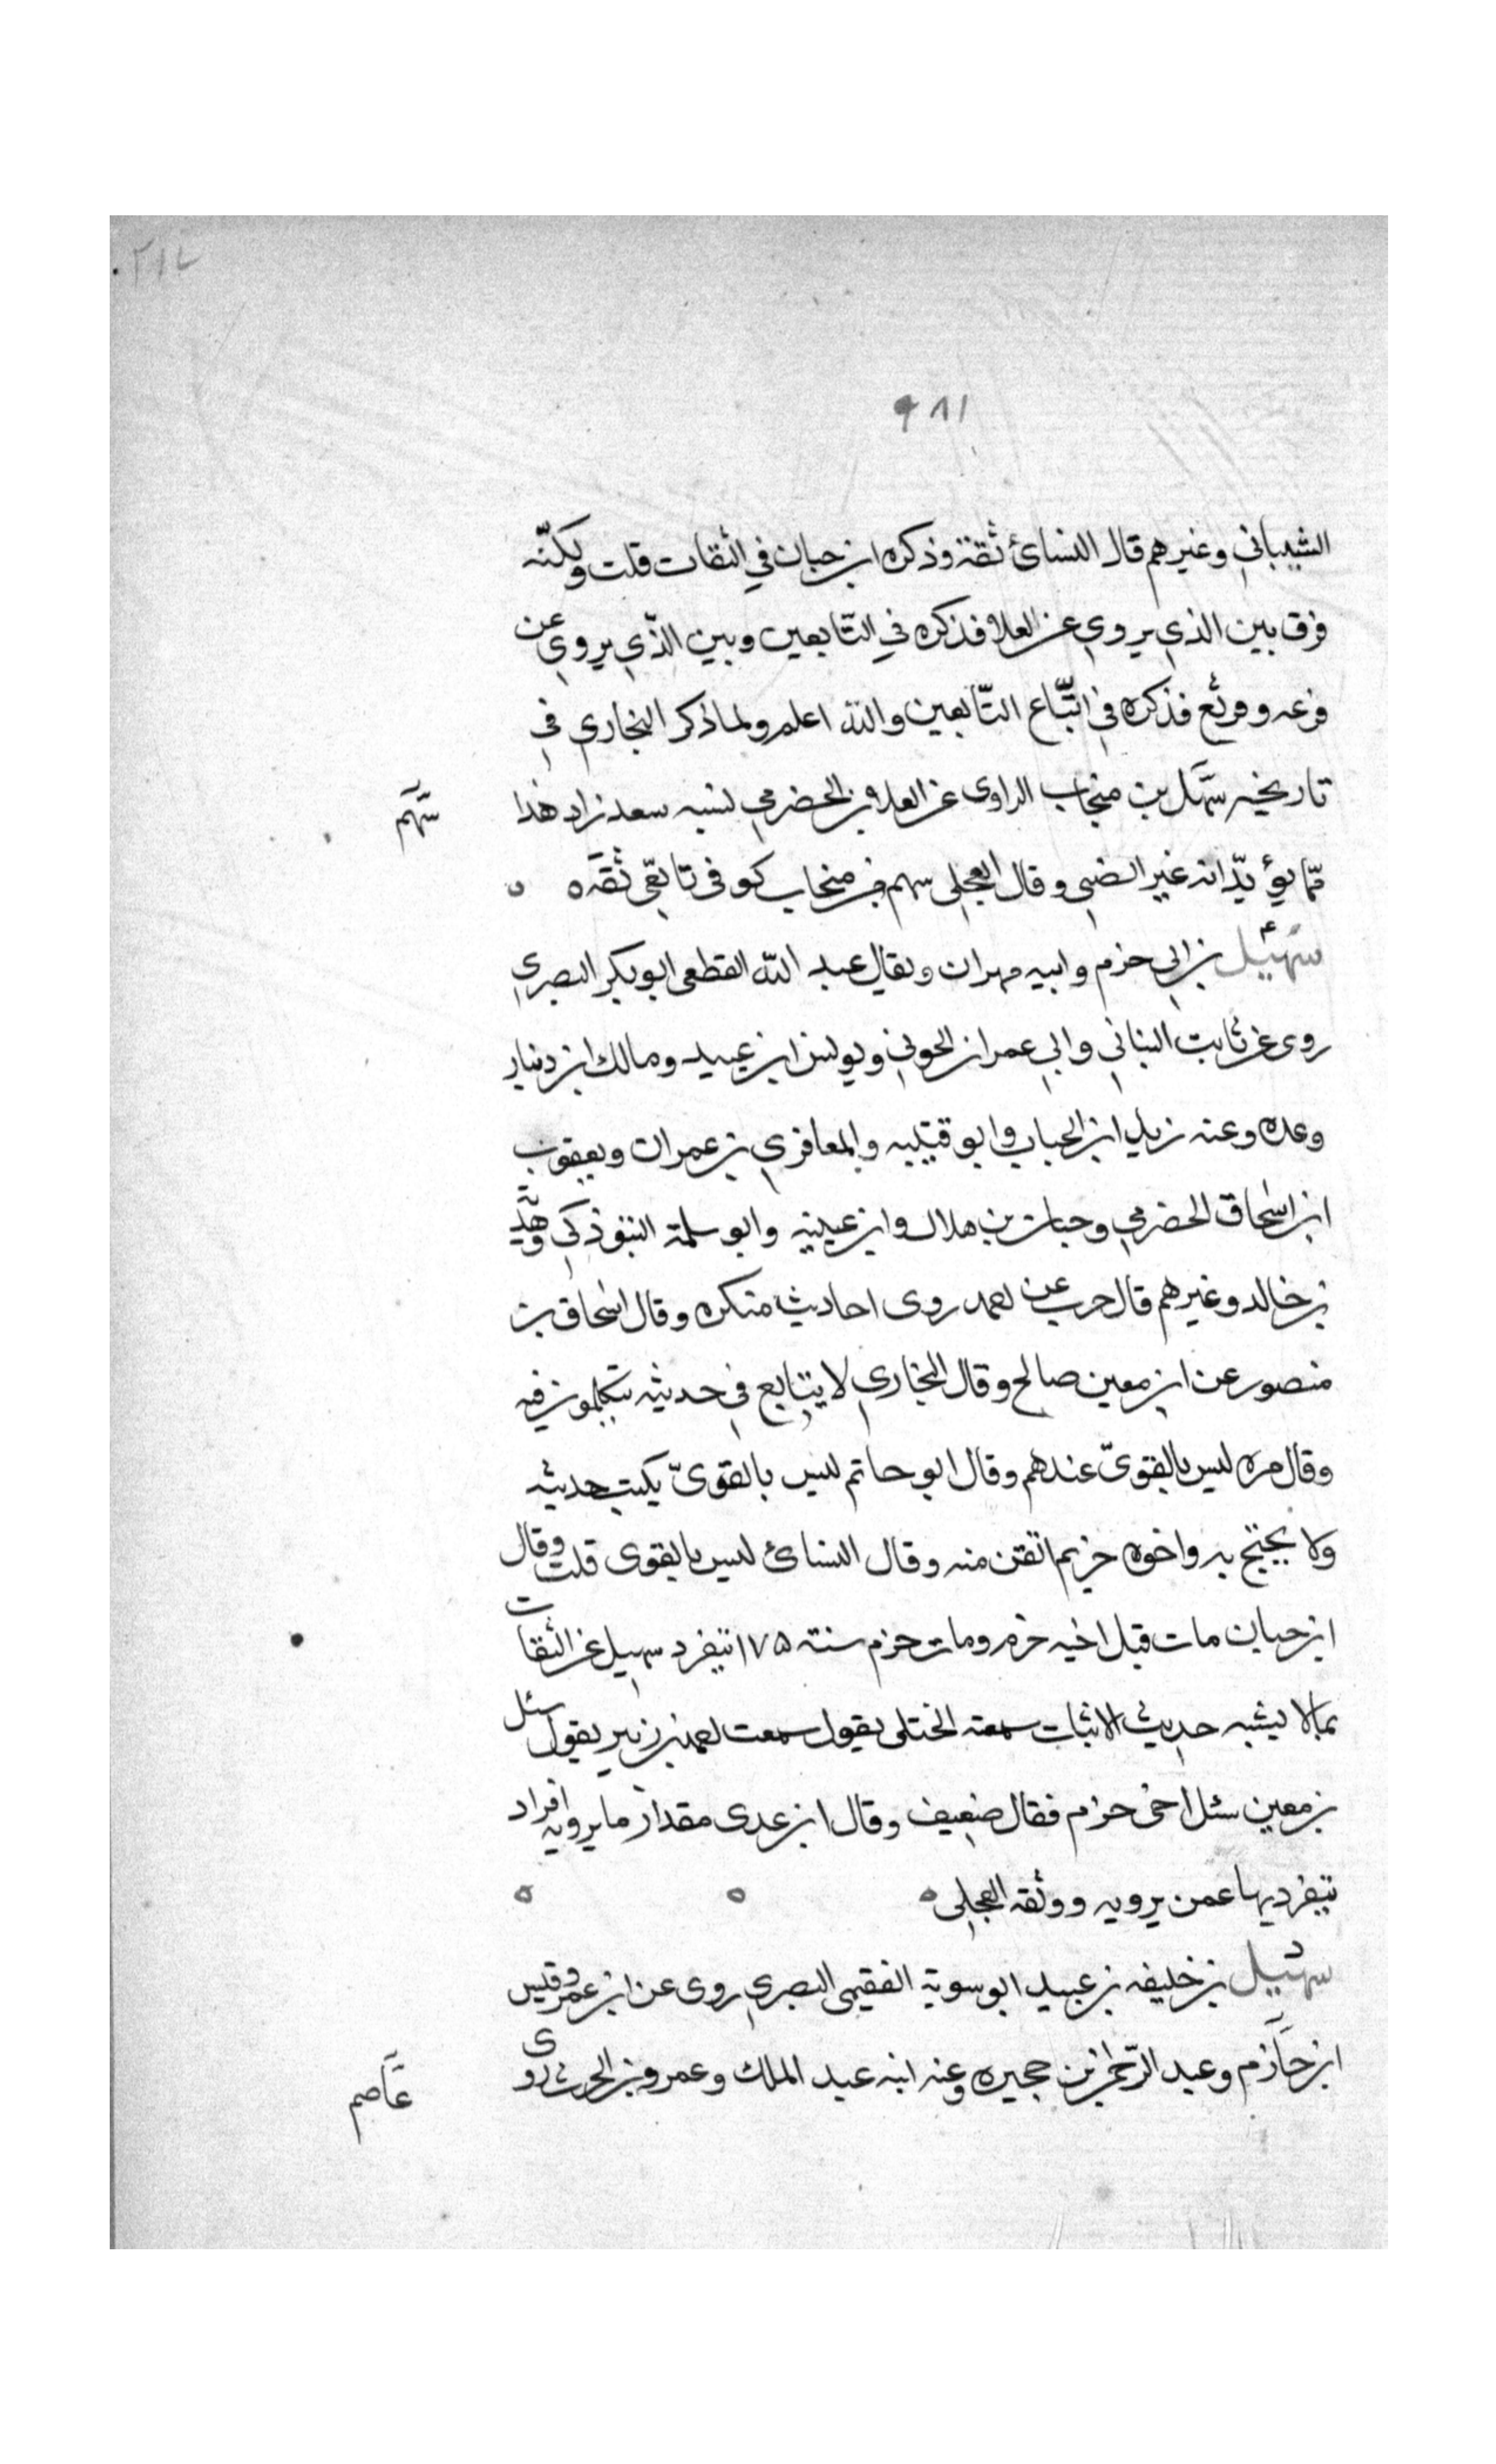 ٩٨١
الشيباني وغيرهم قال النسائ ثقة وذكره ابن حبان في الثقات قلت ولكنّه
فرق بين الذي يروي عن العلا فذكره في التّابعين وبين الذّي يروي عن
قزعه وقرثع فذكره في اتّباع التّابعين والله اعلم ولما ذكر البخاري في
تاريخه سهل بن منجاب الراوى عن العلا بن الحضرمي لنسبه سعد زاد هذا
سهم
ممّا يؤيّد انه غير الضبي وقال العجلى سهم بن منجاب كوفى تابعّى ثقه
سهيل بن ابي حزم وابيه مهران ويقال عبد الله القطعى ابو بكر البصري
روى عن ثابت البناني وابي عمران الجوني ويونس ابن عبيد ومالك ابن دينار
وعده وعنه زيد ابن الحباب وابو قتيبه والمعافري بن عمران ويعقوب
ابن اسحاق الحضرمي وحبان بن هلال وابن عيينه وابو سلمة التبوذكي وهدبة
بن خالد وغيرهم قال حرب عن احمد روى احاديث منكره وقال اسحاق بن
منصور عن ابن معين صالح وقال البخاري لا يتابع في حديثه يتكلمون فيه
وقال مره ليس بالقوىّ عندهم وقال ابو حاتم ليس بالقوىّ يكتب حديثه
ولا يحتج به واخوه حزم اتقن منه وقال النسائ ليس بالقوى قلت وقال
ابن حبان مات قبل اخيه حزم ومات حزم سنة ١٧٥ يتفرد سهيل عن الثقات
بمالا يشبه حديث الاثبات سمعته الختلى يقول سمعت احمد بن زبير يقول سئل
بن معين سئل اخى حزم فقال ضعيف وقال ابن عدى مقدار ما يرويه افراد
يتفرد بها عمن يرويه ووثقه العجلى
سهيل بن خليفه بن عبيد ابو سوية الفقيمى البصري روى عن ابن عمر وقيس
ابن حازم وعبد الرّحمن بن حجيره وعنه ابنه عبد الملك وعمرو بن الحرث روى
عاصم